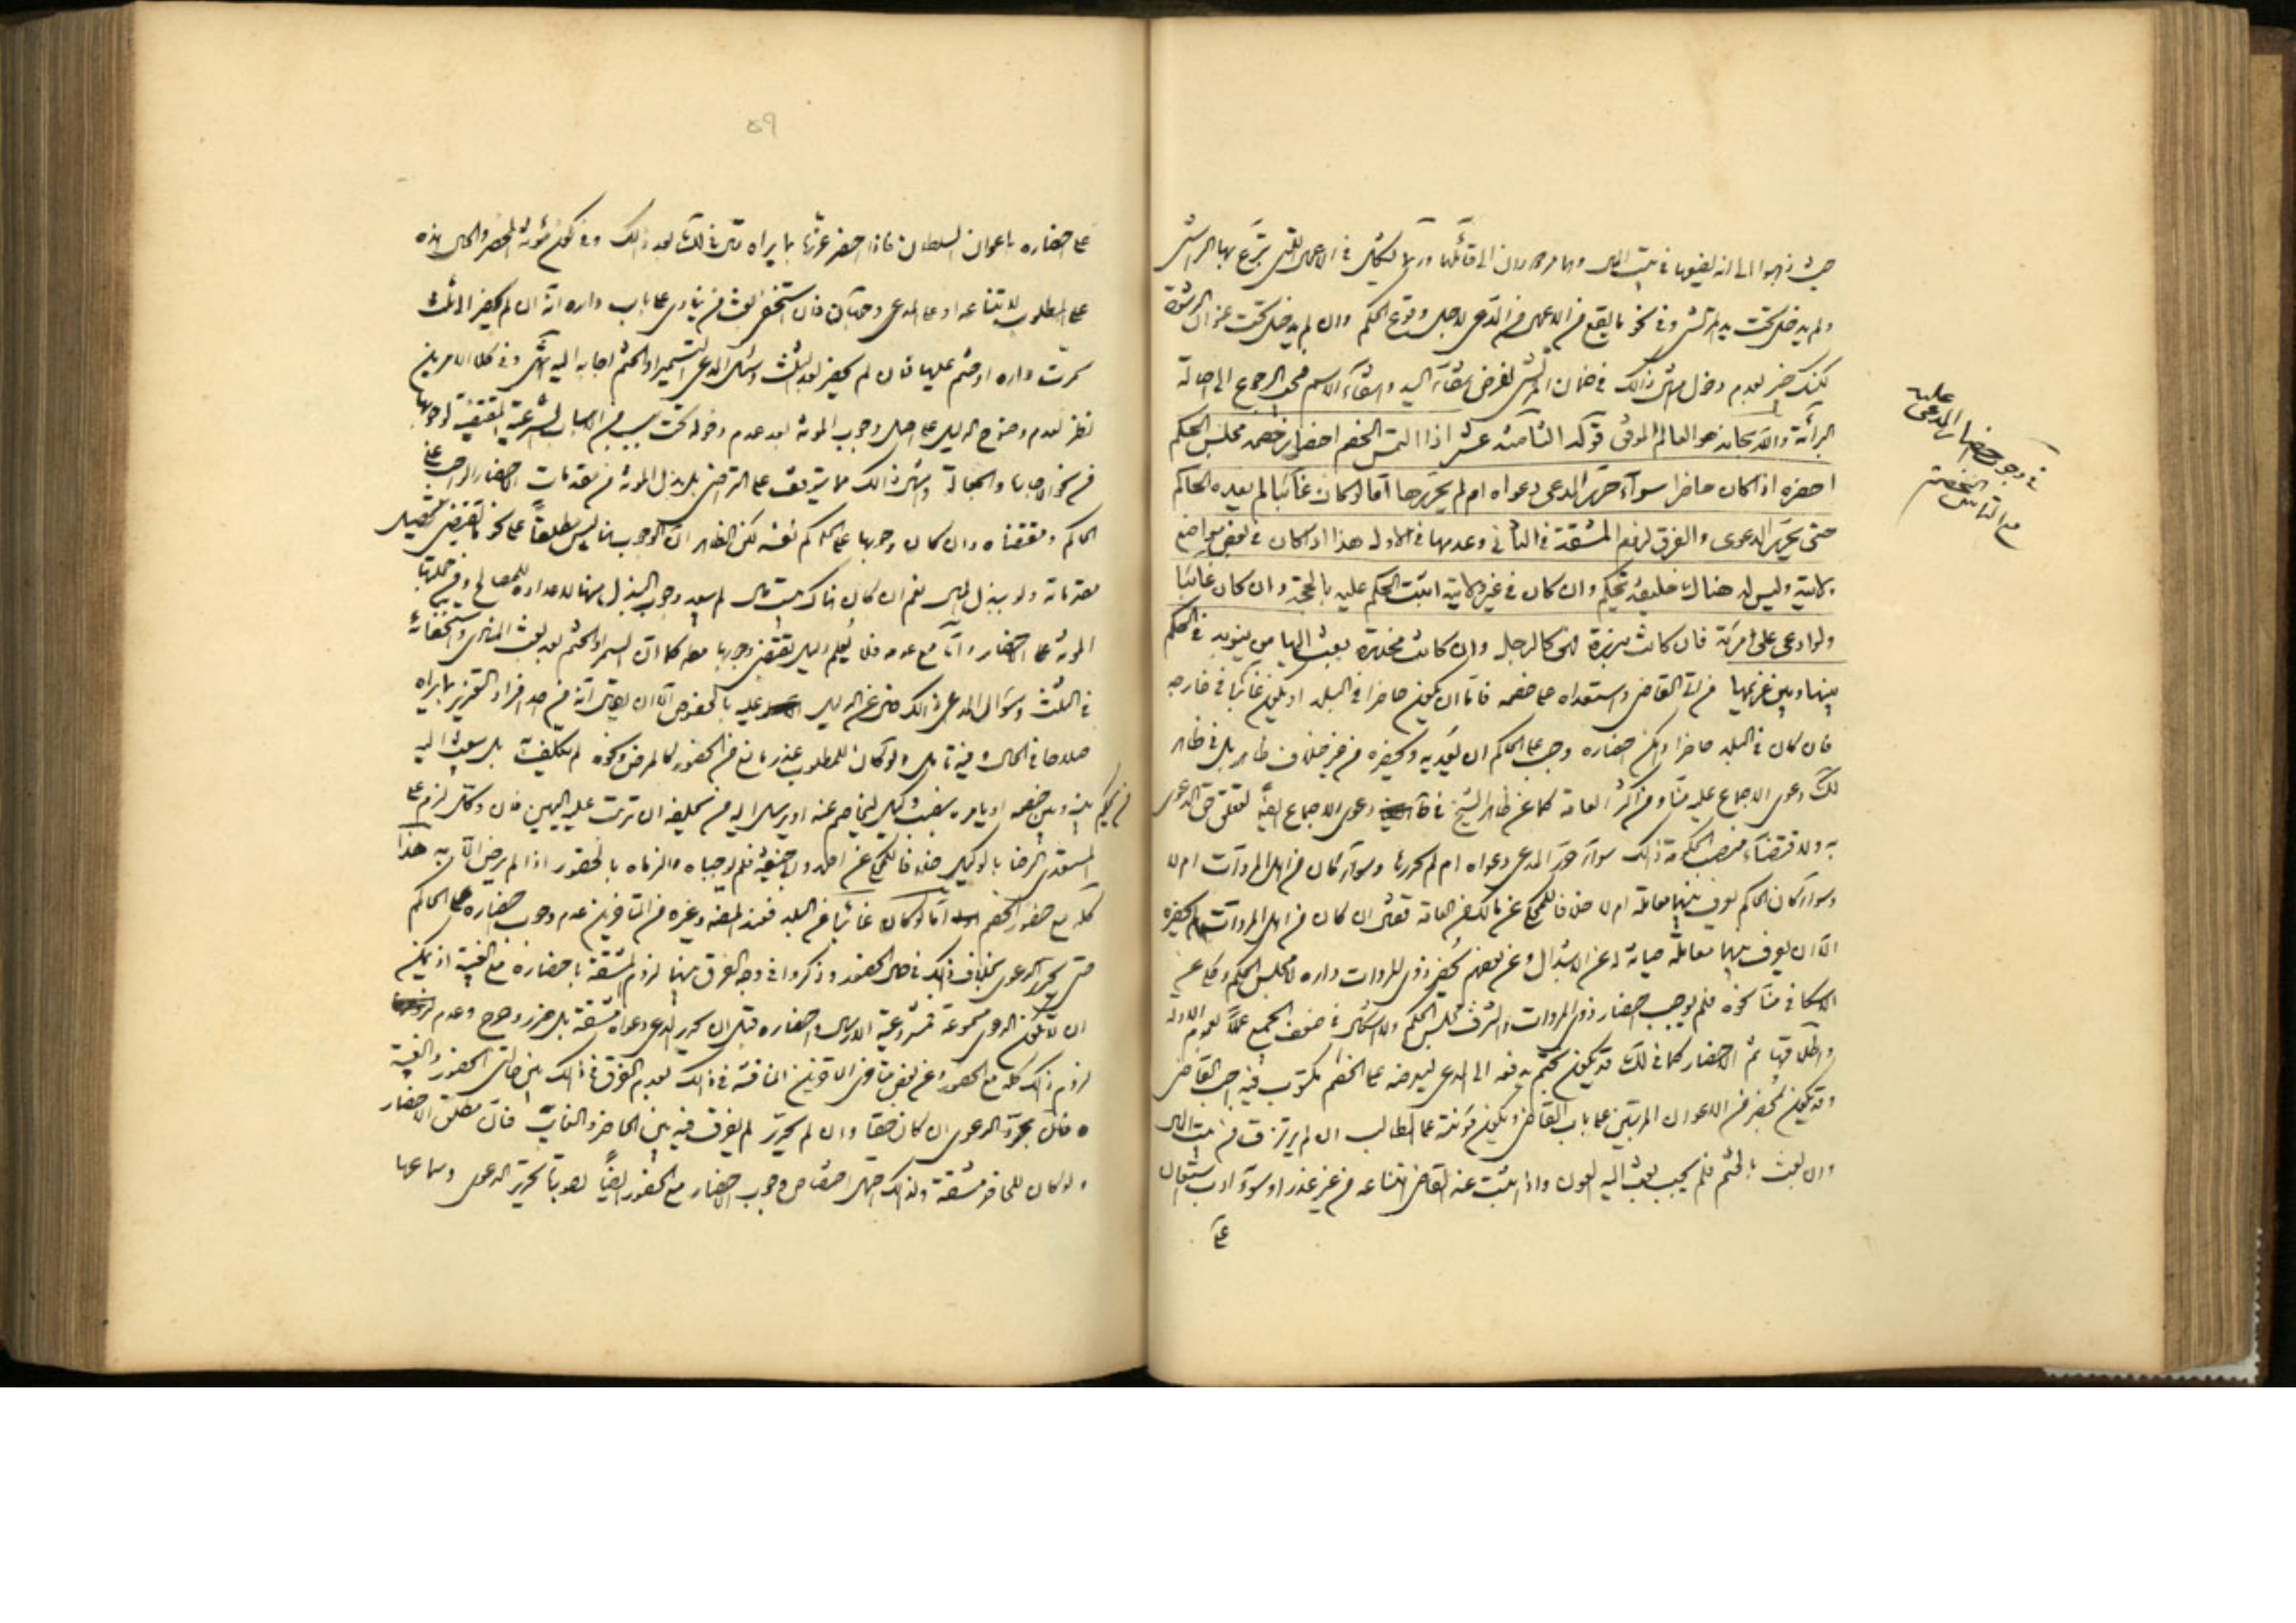 حيث ذهبوا الى انه يضمنها في بيت المال
ولم يدخل تحت يد المرتشي وفي نحو ما يقع من الاعمال من المدعي لاجل وقوع الحكم وان لم يدخل تحت عنوان الرشوة
لكنك خبير بعدم دخول مثل ذلك في ضمان المرتشي لفرض انتفاء اليد وانتفاء الاسم فيجب الرجوع الى اصالة
البرائة والله سبحانه هو العالم الموفق قوله الثامنة عشر اذا التمس الخصم احضار خصمه مجلس الحكم
احضره اذا كان حاضرا سواء حرر المدعي دعواه ام لم يحررها اما لو كان غائبا لم يعده الحاكم
حتى يحرر الدعوى والفرق لزوم المشقة في الثاني وعدمها في الاول هذا اذا كان في بعض مواضع
ولايته وليس له هناك خليفة يحكم وان كان في غير ولايته اثبت الحكم عليه بالحجة وان كان غائبا
ولو ادعى على امرئة فان كانت برزة فهي كالرجل وان كانت مخدرة بعث اليها من ينوبه في الحكم
بينها وبين غريمها من اتى القاضي واستعداه على خصمه فاما ان يكون حاضرا في البلد او يكون غائبا في خارجه
فان كان في البلد حاضرا وامكن احضاره وجب على الحاكم ان يعديه ويحضره من غير خلاف ظاهر بل في ظاهر
لك دعوى الاجماع عليه منا ومن اكثر العامة كما عن ظاهر الشيخ في دعوى الاجماع ايضا لتعلق حق الدعوى
به ولاقتضاء منصب الحكومة ذلك سواء حرر المدعي دعواه ام لم يحررها وسواء كان من اهل المروات ام لا
وسواء كان الحاكم يعرف بينهما معاملة ام لا خلافا للمحكي عن مالك من العامة فقال ان كان من اهل المروات لم يحضره
الا ان يعرف بينهما معاملة صيانة له عن الابتذال وعن بعضهم يحضر ذوي المروات داره لا مجلس الحكم وحكي عن
الاسكافي منا نحوه فلم يوجب احضار ذوي المروات والشرف مجلس الحكم ولا اشكال في ضعف الجميع عملا بعموم الادلة
واطلاقها ثم الاحضار كما في لك قد يكون بختم يدفعه الى المدعي ليعرضه على الخصم مكتوب فيه اجب القاضي
وقد يكون بمحضر من الاعوان المرتبين على باب القاضي ويكون مؤنته على الطالب ان لم يرتزق من بيت المال
وان بعث بالختم فلم يجب بعث اليه العون واذا ثبت عند القاضي امتناعه من غير عذر او سوء ادب استعان
على
في وجوب احضار المدعى عليه
مع التماس الخصم
٥٩
على احضاره باعوان السلطان فاذا حضر عزره بما يراه قال في لك بعد ذلك وفي كون مؤنة المحضر والحال هذه
على المطلوب لامتناعه او على المدعي وجهان فان استخفى بعث من ينادي على باب داره انه ان لم يحضر الى ثلث
سمرت داره او ختم عليها فان لم يحضر بعد الثلث وسئل المدعي التسمير او الختم اجابه اليه انتهى وفي كلا الامرين
نظر لعدم وضوح الدليل على اصل وجوب المؤنة بعد عدم دخوله تحت سبب من الاسباب الشرعية المقتضية لوجوبها
من نحو الاجارة والجعالة ومثل ذلك مما يتوقف على التراضي بل بذل المؤنة من مقدمات الاحضار الواجب على
الحاكم ومقتضاه وان كان وجوبها على الحاكم نفسه لكن الظاهر ان الوجوب هنا ليس مطلقا على نحو يقتضي تحصيل
مقدماته ولو ببذل المال نعم ان كان هناك بيت مال لم يبعد وجوب البذل منها لاعداده للمصالح ومن جملتها
المؤنة على الاحضار واما مع عدمه فلا يعلم دليل يقتضي وجوبها معه كما ان التسمير والختم بعد بعث المنادي واستخفائه
في الثلث وسؤال المدعي ذلك خال عن الدليل عليه بالخصوص الا ان يقال انه من احد افراد التعزير بما يراه
صلاحا في الحال وفيه تامل ولو كان للمطلوب عذر مانع من الحضور كالمرض ونحوه لم يكلفه بل يبعث اليه
من يحكم بينه وبين خصمه او يامره بنصب وكيل ليخاصم عنه او يرسل اليه من يحلفه ان ترتب عليه اليمين فان وكل لزم على
المستعدي الرضا بالوكيل خلافا للمحكي عن احمد وابي حنيفة فلم يوجباه والزماه بالحضور اذا لم يرض الا به هذا
كله مع حضور الخصم اما لو كان غائبا عن البلد فعند المص وغيره من المتاخرين عدم وجوب احضاره على الحاكم
حتى يحرر الدعوى بخلاف ذلك في حال الحضور وذكروا في وجه الفرق بينهما لزوم المشقة باحضاره مع الغيبة اذ يمكن
ان لا تكون الدعوى مسموعة فمشروعية الارسال واحضاره قبل ان يحرر المدعي دعواه مشقة بل ضرر وحرج وعدم
لزوم ذلك كله مع الحضور وعن بعض متاخري المتاخرين المناقشة في ذلك بعدم الفرق في ذلك بين حالتي الحضور والغيبة
فان بتحرير الدعوى ان كان حقا وان لم يحرر لم يفرق فيه بين الحاضر والغائب فان مطلق الاحضار
ولو كان للحاضر مشقة ولذلك اختصاص وجوب الاحضار مع الحضور ايضا بصورتي تحرير الدعوى وسماعها